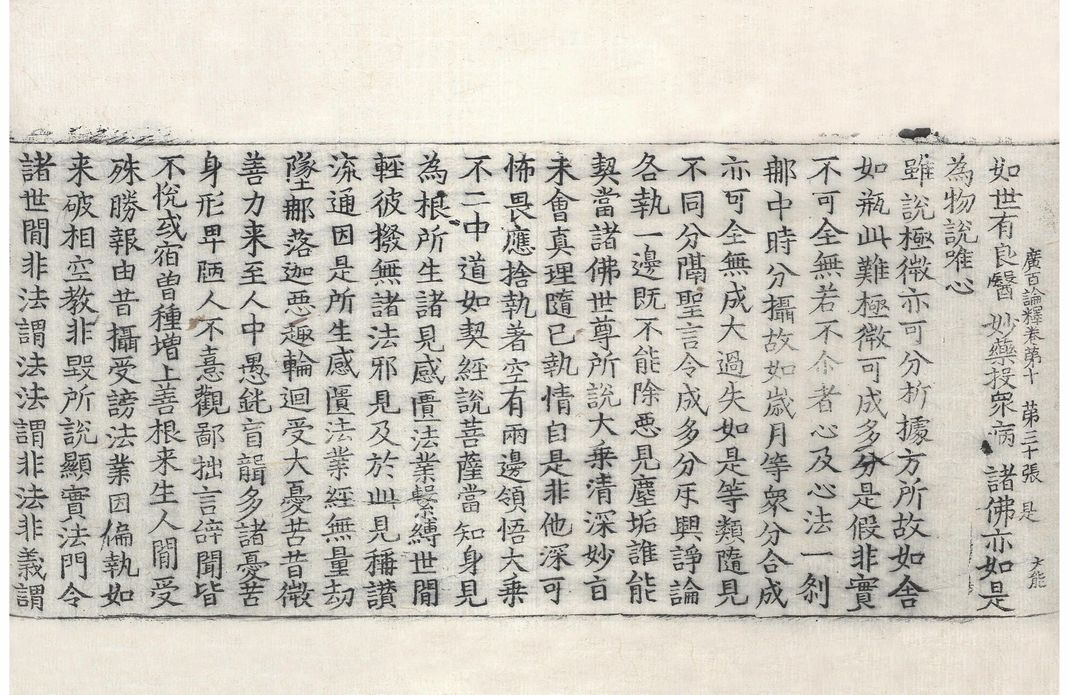 如世有良醫 妙藥投衆病 諸佛亦如是
廣百論釋卷第十 第三十張 是
大能
為物說唯心
雖說極微亦可分析據方所故如舍
如瓶此難極微可成多分是假非實
不可全無若不尒者心及心法一刹
那中時分攝故如歲月等衆分合成
亦可全無成大過失如是等類隨見
不同分隔聖言令成多分互興諍論
各執一邊既不能除惡見塵垢誰能
契當諸佛世尊所說大乗清深妙㫖
未會真理隨已執情自是非他深可
怖畏應捨執著空有兩邊領悟大乗
不二中道如契經說菩薩當知身見
為根所生諸見感匱法業繫縛世閒
輕彼撥無諸法邪見及於此見稱讃
流通因是所生感匱法業經無量劫
墜那落迦惡趣輪迴受大憂苦昔微
善力来至人中愚鈍盲聾多諸憂苦
身形卑陋人不憙觀鄙拙言辝聞皆
不悅或宿曽種增上善根来生人閒受
殊勝報由昔攝受謗法業因偏執如
来破相空教非毀所說顯實法門令
諸世閒非法謂法法謂非法非義謂